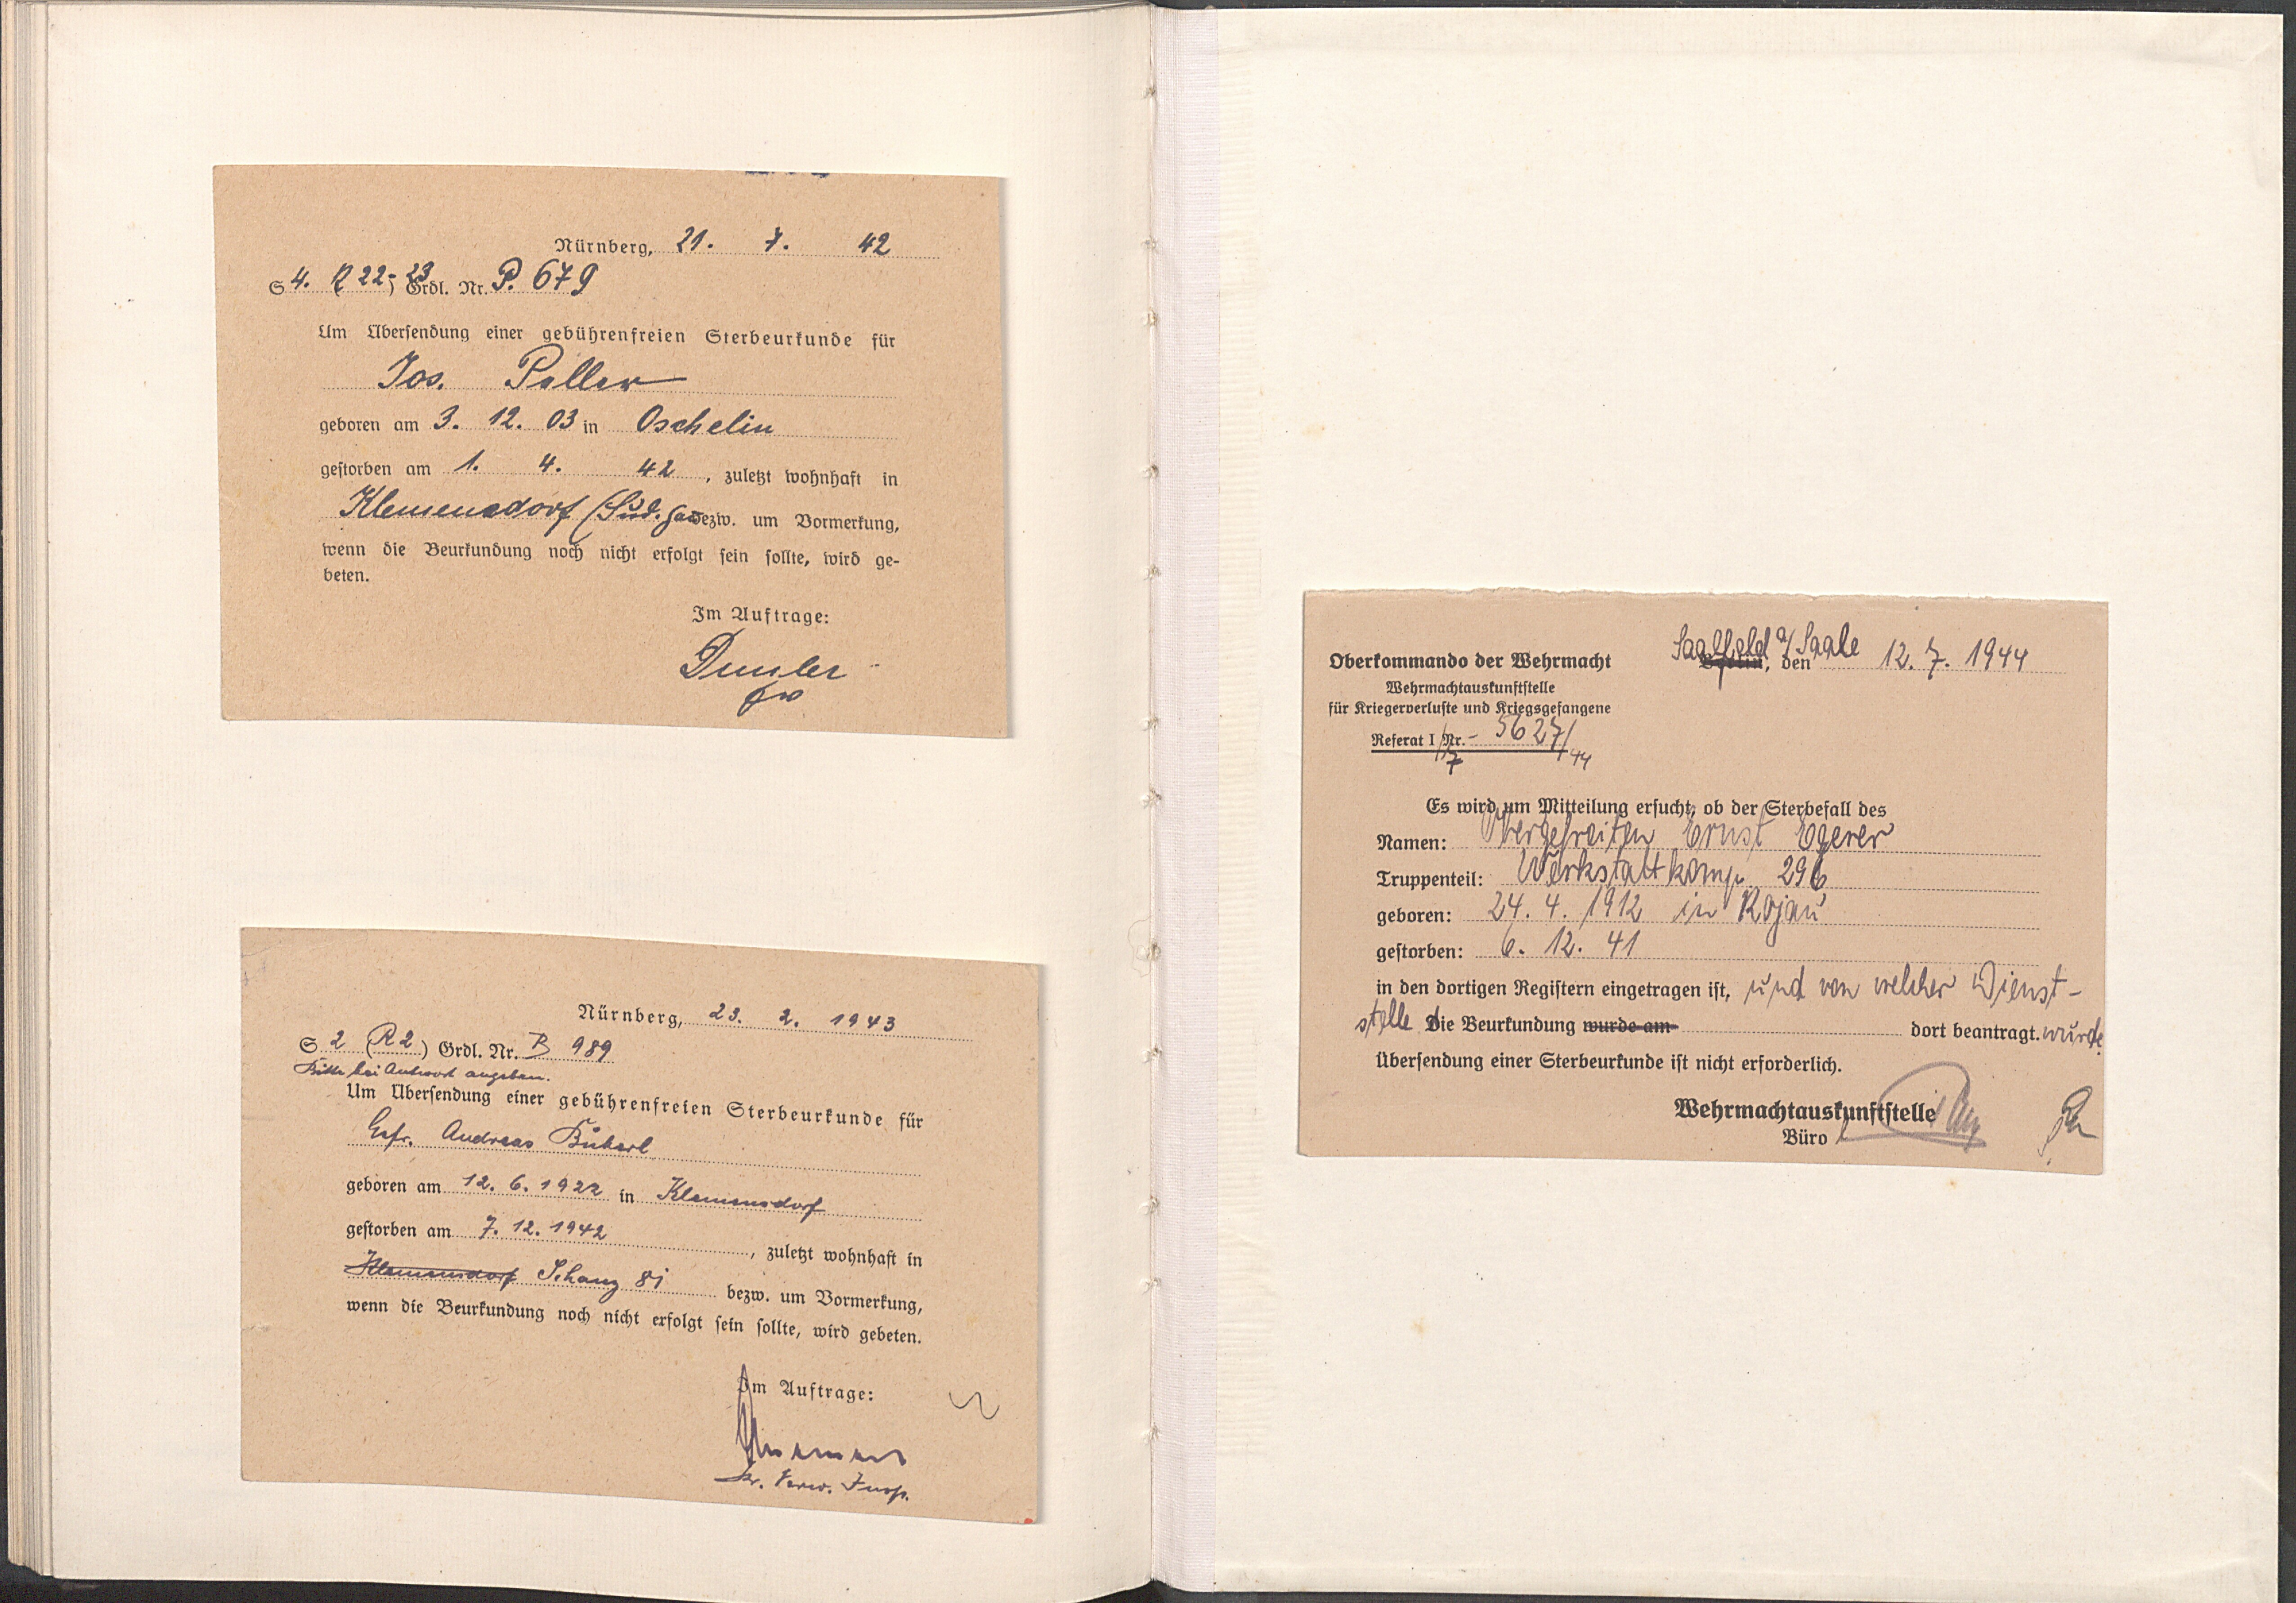 Nürnberg, 21. 7. 42
S 4. (R 22-23) Grdl. Nr. P. 679
Um Übersendung einer gebührenfreien Sterbeurkunde für
Jos. Poller
geboren am 3. 12. 03 in Oschelin
gestorben am 1. 4. 42, zuletzt wohnhaft in
Klemensdorf (Sud. Gau bezw. um Vormerkung,
wenn die Beurkundung noch nicht erfolgt sein sollte, wird ge-
beten.
Im Auftrage:
Nürnberg, 23. 2. 1943
S 2 (R2) Grdl. Nr. B 989
Bitte bei Antwort angeben.
Um Übersendung einer gebührenfreien Sterbeurkunde für
Gefr. Andreas
geboren am 12. 6. 1922 in Klemensdorf
gestorben am 7. 12. 1942, zuletzt wohnhaft in
Klemensdorf Schanz 81 bezw. um Vormerkung,
wenn die Beurkundung noch nicht erfolgt sein sollte, wird gebeten.
Im Auftrage:
Verw. Insp.
Saalfeld a/Saale
Oberkommando der Wehrmacht Berlin, den 12. 7. 1944
Wehrmachtauskunftstelle
für Kriegerverluste und Kriegsgefangene
Referat I/7 Nr. - 5627/44
Es wird um Mitteilung ersucht, ob der Sterbefall des
Namen: Obergefreiten Ernst Egerer
Truppenteil: Werkstattkomp. 296
geboren: 24. 4. 1912 in Kojau
gestorben: 6. 12. 41
in den dortigen Registern eingetragen ist, und von welcher Dienst-
stelle die Beurkundung wurde am dort beantragt. wurde.
Übersendung einer Sterbeurkunde ist nicht erforderlich.
Wehrmachtauskunftstelle
Büro